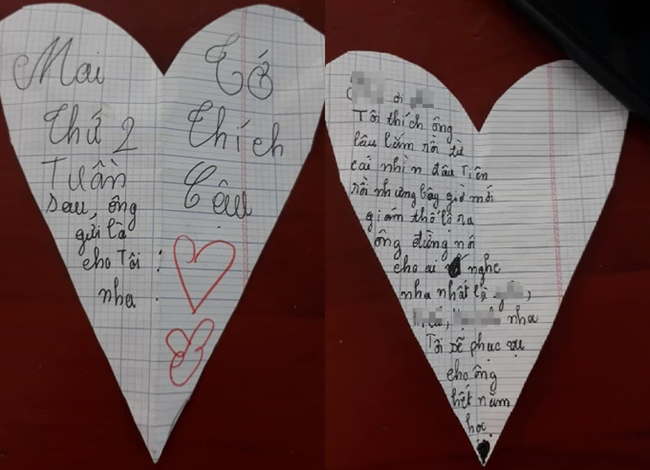 Mai
Thứ 2
Tuần
sau, ông
gửi là
cho Tôi :
nha .
Tớ
Thích
Cậu
ơi
Tôi thích ông
lâu lắm rồi từ
cái nhìn đầu Tiên
rồi nhưng bây giờ mới
giám thổ lộ ra
ông đừng nó
cho ai nghe
nha nhất là
nha
Tôi sẽ phục vụ
cho ông
hết năm
học